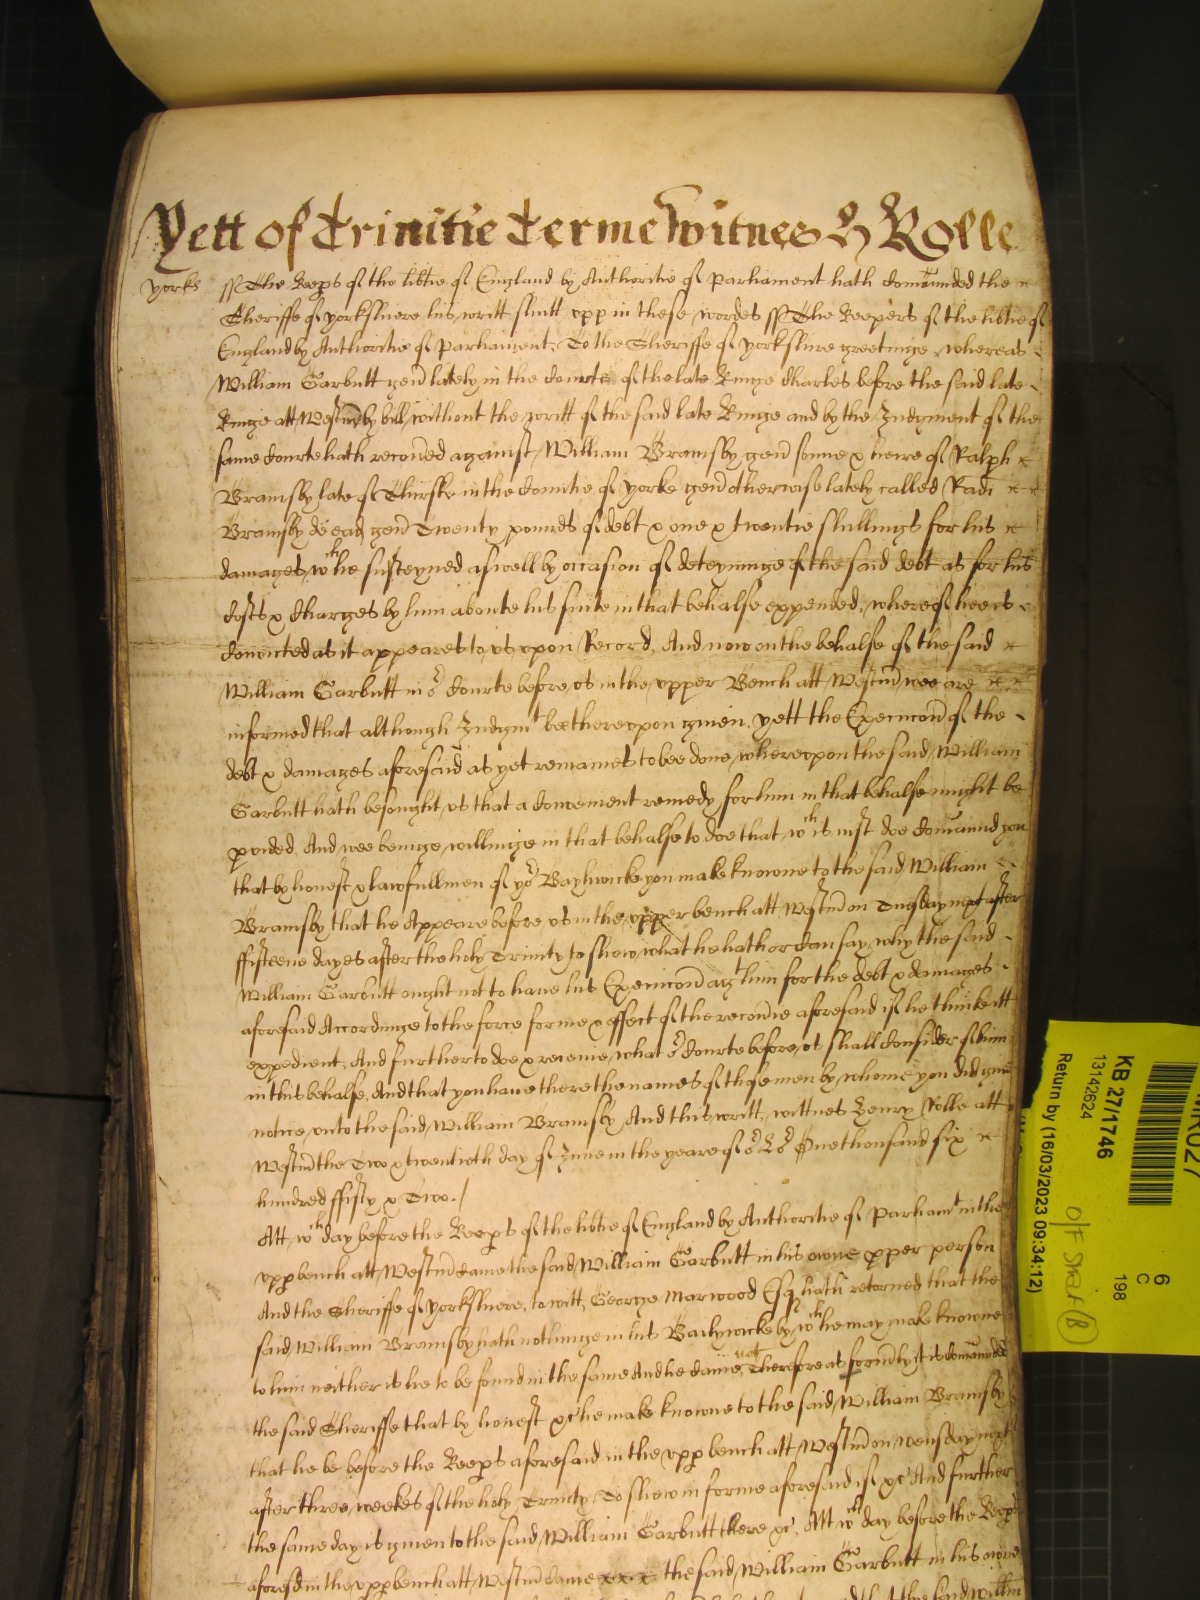 Yett of Trinitie Terme Witnes H Rolle
yorks ss The Keeps of the libtie of England by Authoritie of Parliament hath Comaunded the
Sheriffe of yorkshiere his writt shutt upp in these wordes ss The Keepers of the libtie of
England by Authoritie of Parliament, To the Sheriffe of yorkshire greetinge whereas
William Garbutt gen lately in the Courte of the late Kinge Charles before the said late
Kinge att Westm by bill without the writt of the said late Kinge and by the Judgment of the
same Courte hath recoued against William Bramsby gen sonne & heire of Ralph
Bramsby late of Thirske in the Countie of yorke gen otherwise lately called Radi
Bramsby de ead gen Twenty pounds of debt & one & twentie shillings for his
damages wch he susteyned aswell by occasion of deteyninge of the said debt as for his
Costs & Charges by him aboute his suite in that behalfe expended, whereof hee is
Convicted as it appeares to us upon Record, And now on the behalfe of the said
William Garbutt in or Courte before us in the upper Bench att Westm wee are
informed that although Judgmt bee thereupon given, yett the Execucon of the
debt & damages aforesaid as yet remaines to bee done, whereupon the said William
Garbutt hath besought us that a Convenient remedy for him in that behalfe might be
pvided, And wee beinge willinge in that behalfe to doe that wch is just doe Comaund you
that by honest & lawfull men of yor Baylywicke you make knowne to the said William
Bramsby that he Appeare before us in the upper bench att Westm on Tuesday next after
ffifteene dayes after the holy Trinity to shew what he hath or Can say why the said
William Garbutt ought not to haue his Execucon agt him for the debt & damages
aforesaid Accordinge to the force forme & effect of the recouie aforesaid if he thinke itt
expedient, And further to doe & receiue what or Courte before us shall Consider of him
in this behalfe, And that you haue there the names of those men by whome you did giue
notice unto the said William Bramsby And this writt, wittnes Henry Rolle att
Westm the Two & twentieth day of June in the yeare of or Lord One thousand six
hundred ffifty & Two./
Att wch day before the Keeps of the libtie of England by Authoritie of Parliamt in the
upp bench att Westm Came the said William Garbutt in his owne pper person
And the Sheriffe of yorkshiere, to witt, George Marwood Esq hath retorned that the
said William Bramsby hath nothinge in his Bailywicke by wch he may make knowne
to him neither is he to be found in the same And he Came not Therefore as formrly it is Comaunded
the said Sheriffe that by honest &c he make knowne to the said William Bramsby
that he be before the Keeps aforesaid in the upp bench att Westm on wensday next
after three weekes of the holy Trinity, To shew in forme aforesaid if &c And further
the same day is given to the said William Garbutt there &c, Att wch day before the Keeps
aforesd in the upp bench att Westm Came the said William Garbutt in his owne
KB 27/1746
13142624
Return by (16/03/2023 09:34:12)
6
C
198